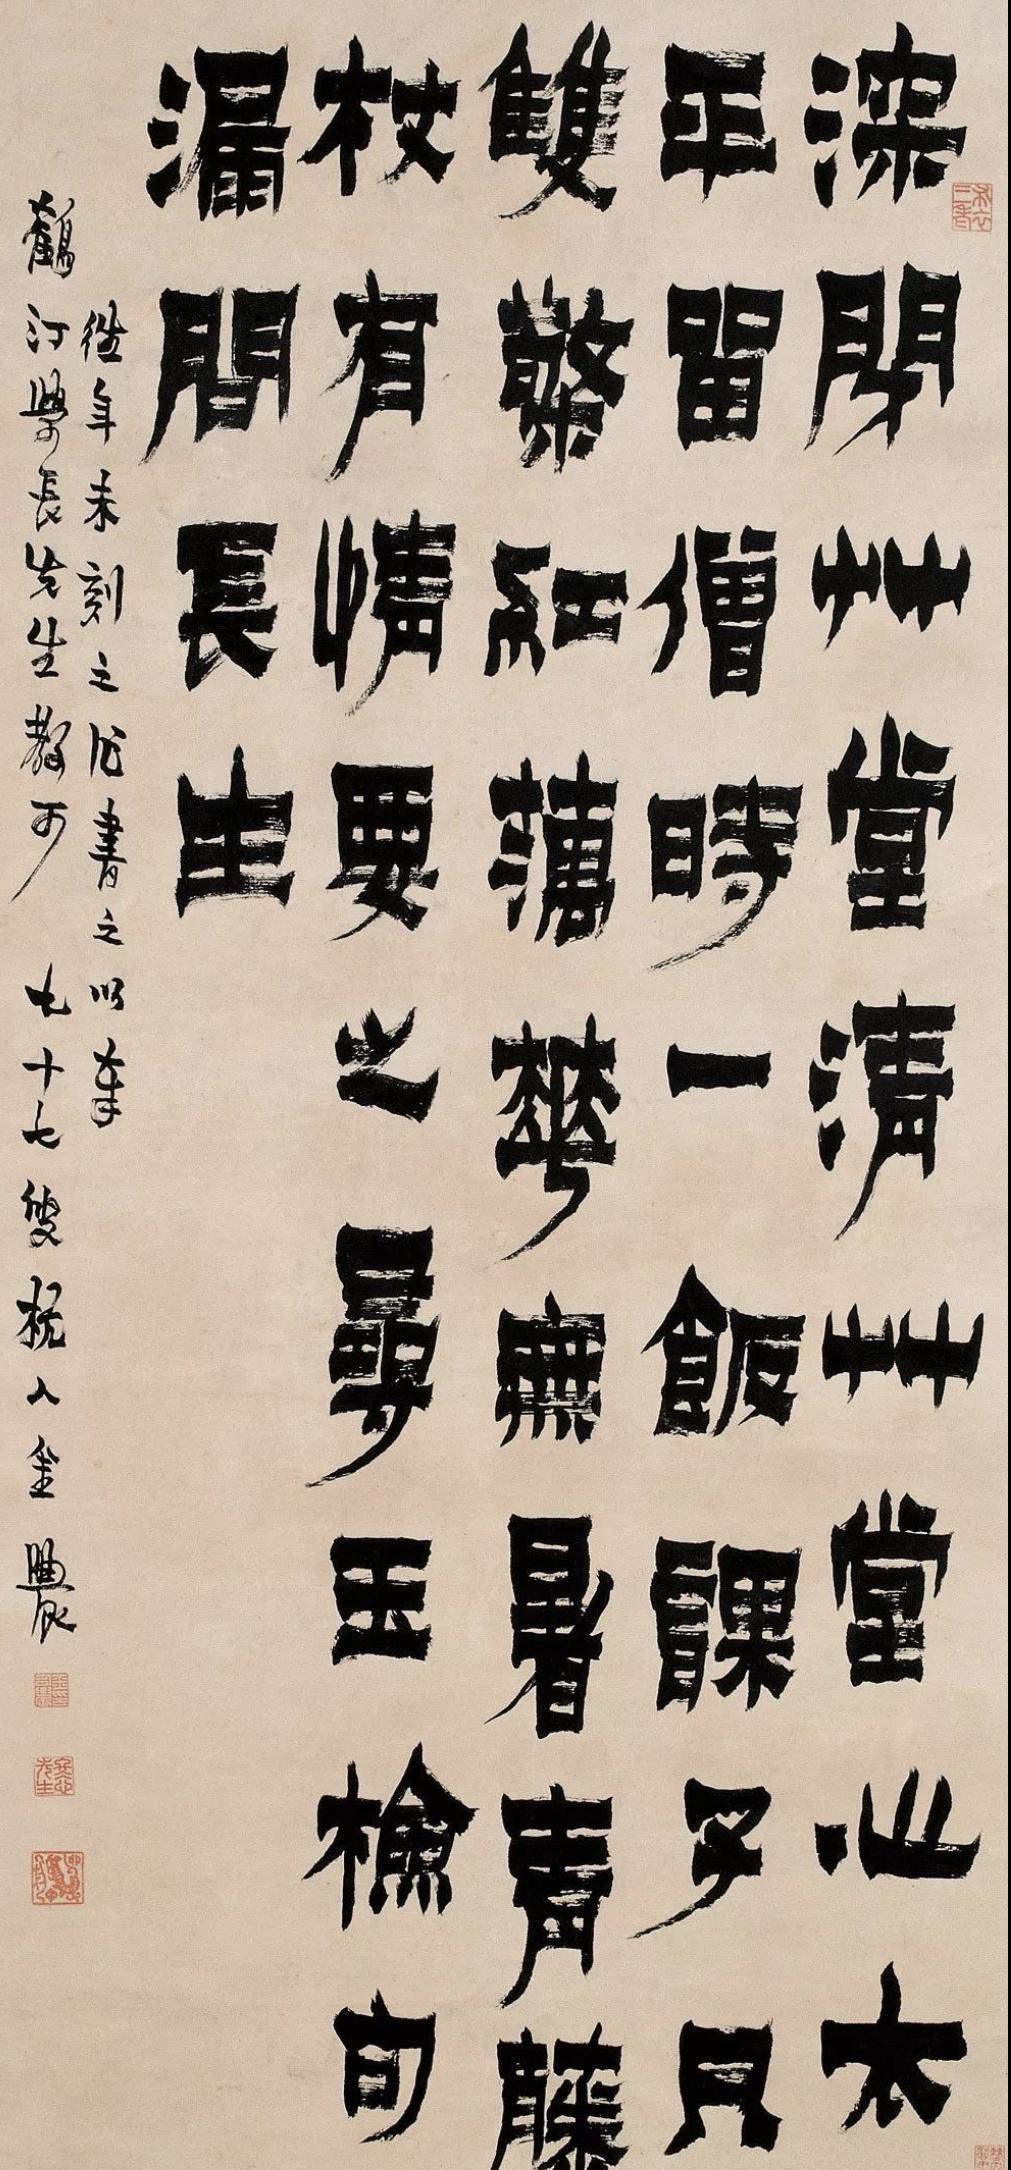 深閉艸堂清艸堂心太
平留僧時一飯課子只
雙檠紅華無暑青藤
杖有情要之尋玉檢句
漏問長生
往年未刻之作書之以奉
鶴汀學長先生教可 七十七叟杭人金農